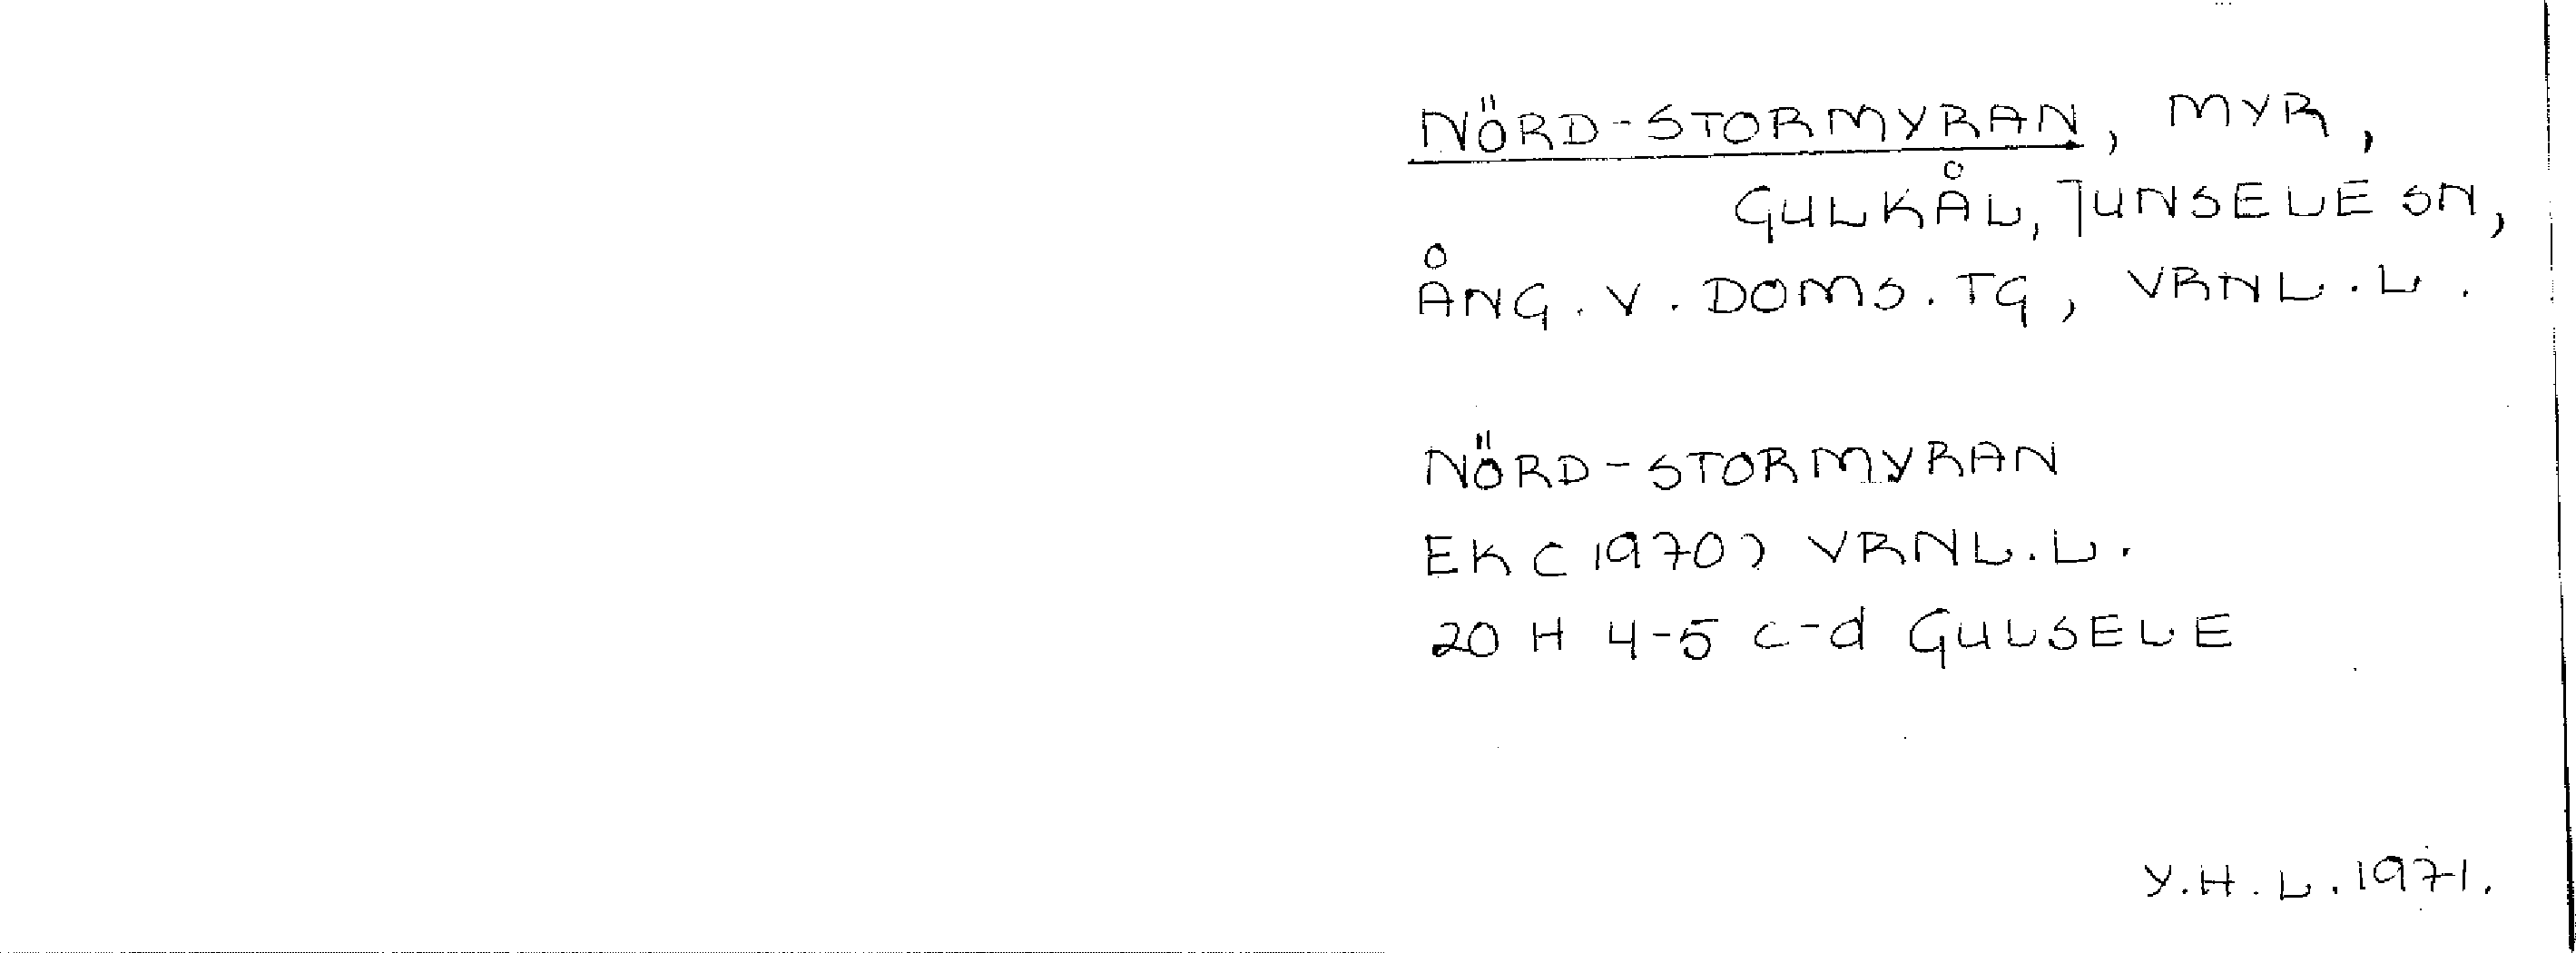 NÖRD-STORMYRAN, MYR,
GULKÅL, JUNSELE SN,
ÅNG. V. DOMS. TG, VRNL. L.
NÖRD-STORMYRAN
EK (1970) VRNL. L.
20 H 4-5 c-d GULSELE
Y. H. L. 1971.